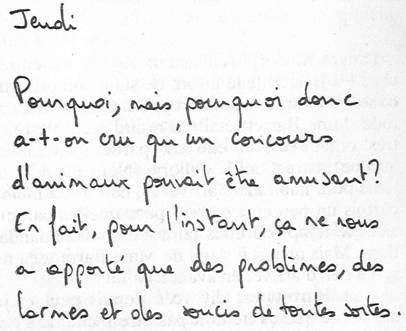 Jeudi
Pourquoi, mais pourquoi donc
a-t-on cru qu'un concours
d'animaux pouvait être amusant?
En fait, pour l'instant, ça ne nous
a apporté que des problèmes, des
larmes et des soucis de toutes sortes.